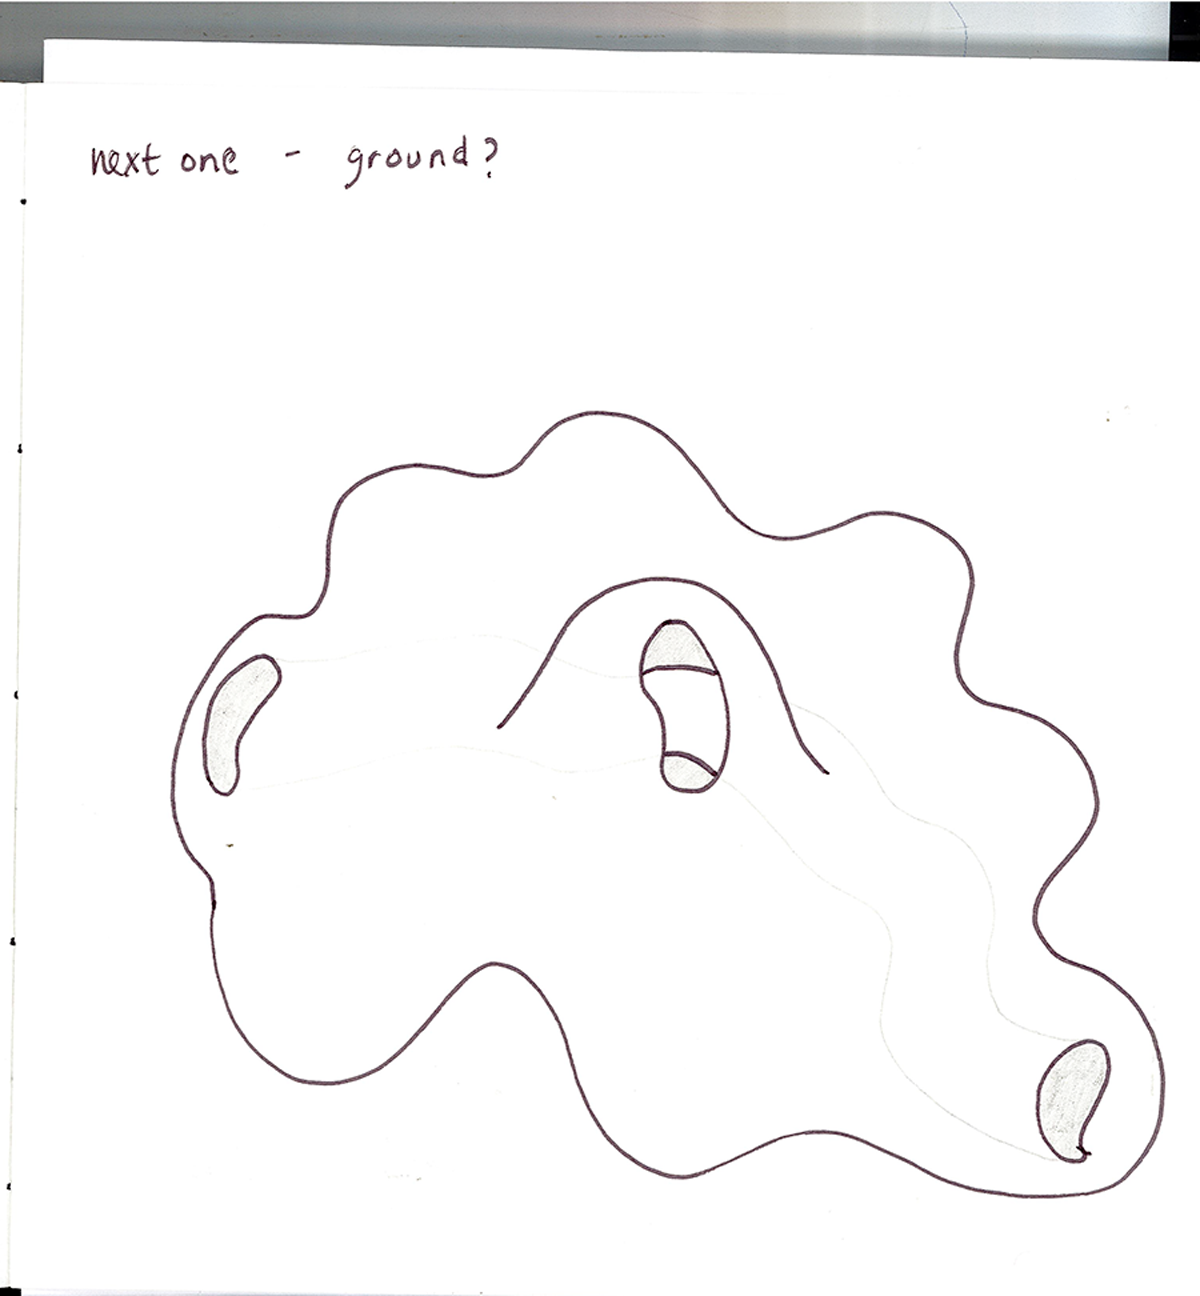 next one - ground?